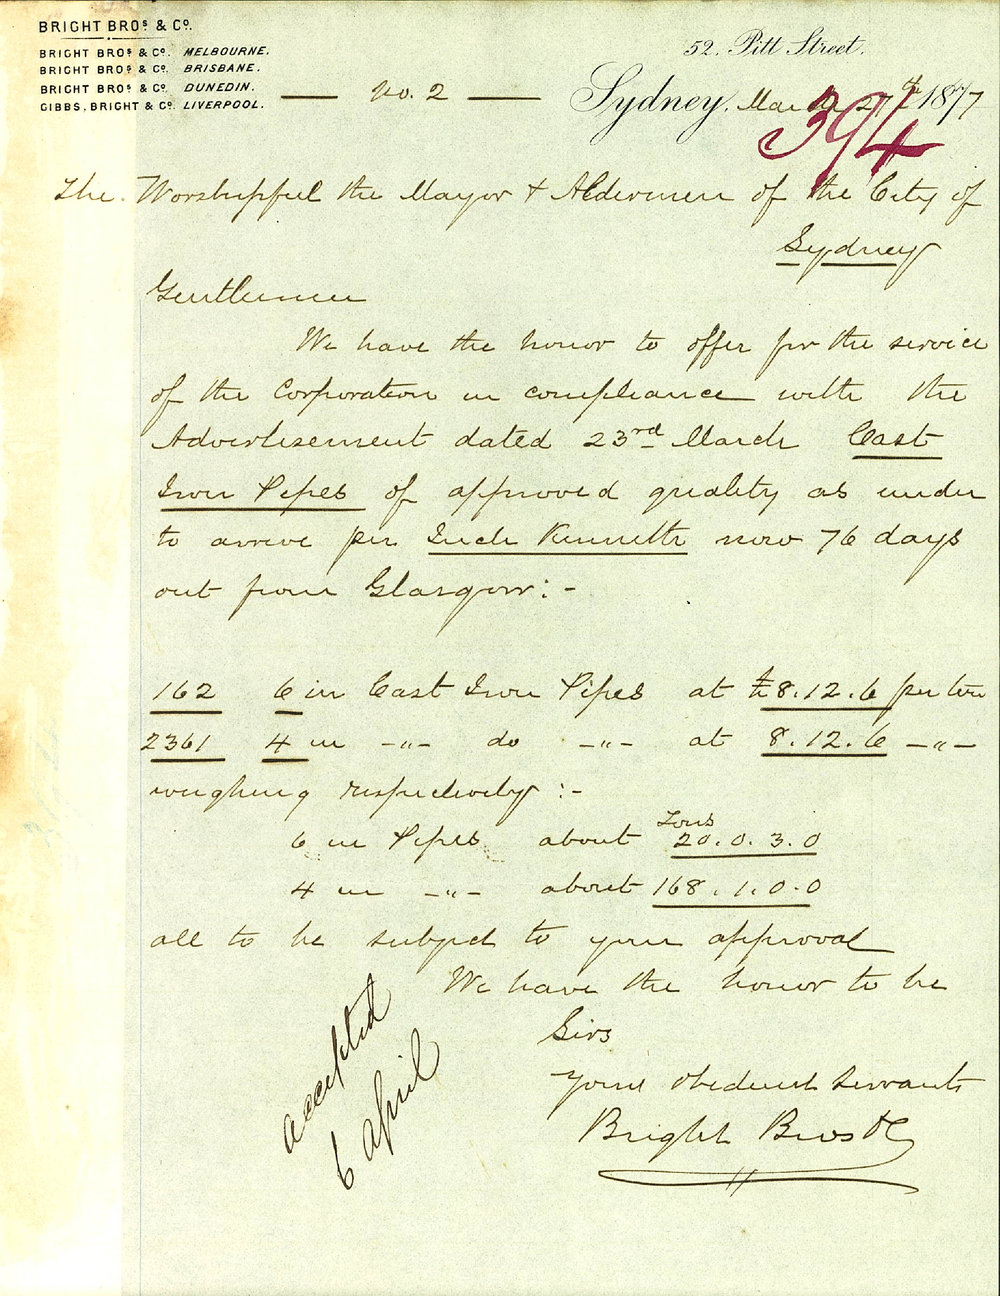 BRIGHT BROS & CO.
BRIGHT BROS & CO. MELBOURNE.
BRIGHT BROS & CO. BRISBANE.
BRIGHT BROS & CO. DUNEDIN.
GIBBS, BRIGHT & CO. LIVERPOOL.
No. 2
52. Pitt Street.
Sydney, March 27th 1877
394
The Worshipful the Mayor & Aldermen of the City of
Sydney
Gentlemen
We have the honor to offer for the service
of the Corporation in compliance with the
Advertisement dated 23rd March Cast
Iron Pipes of approved quality as under
to arrive per Inch Kenneth now 76 days
out from Glasgow:-
162 6 in Cast Iron Pipes at £8.12.6 per ton
2361 4 in -"- do -"- at 8.12.6 -"-
weighing respectively :-
6 in Pipes about Tons 20.0.3.0
4 in -"- about 168.1.0.0
all to be subject to your approval
We have the honor to be
Sirs
Your obedient Servants
Bright Bros & Co
accepted
6 april